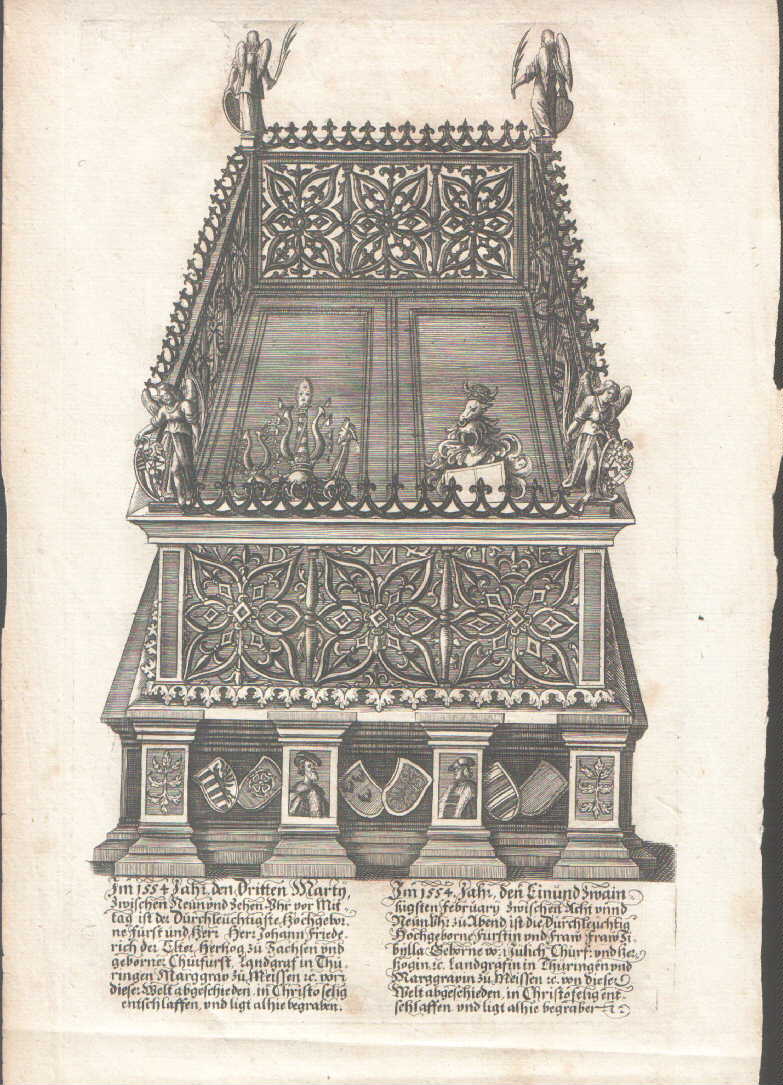 D M
Im 1554 Jahr, den Dritten Marty,
zwischen Neun vnd Zehen Vhr vor Mit-
tag ist der Durchleuchtigste Hochgebor-
ne Fürst und Herr Herr Johann Friede-
rich der Elter Hertzog zu Sachsen vnd
geborner Chürfürst, Landgraf in Thü-
ringen Marggrav zu Meissen ꝛc. von
dieser Welt abgeschieden, in Christo selig
entschlaffen, vnd ligt alhie begraben.
Im 1554. Jahr, den Einund Zwain-
zigsten February zwischen Acht vnnd
Neun Vhr zu Abend ist die Durchleuchtig
Hochgeborne Furstin vnd Fraw Fraw Si-
bylla Geborne von Jülich Churf: vnd Her-
zogin ꝛc. Landgrafin in Thüringen vnd
Marggravin zu Meissen ꝛc. von dieser
Welt abgeschieden, in Christo selig ent-
schlaffen, vnd ligt alhie begraben